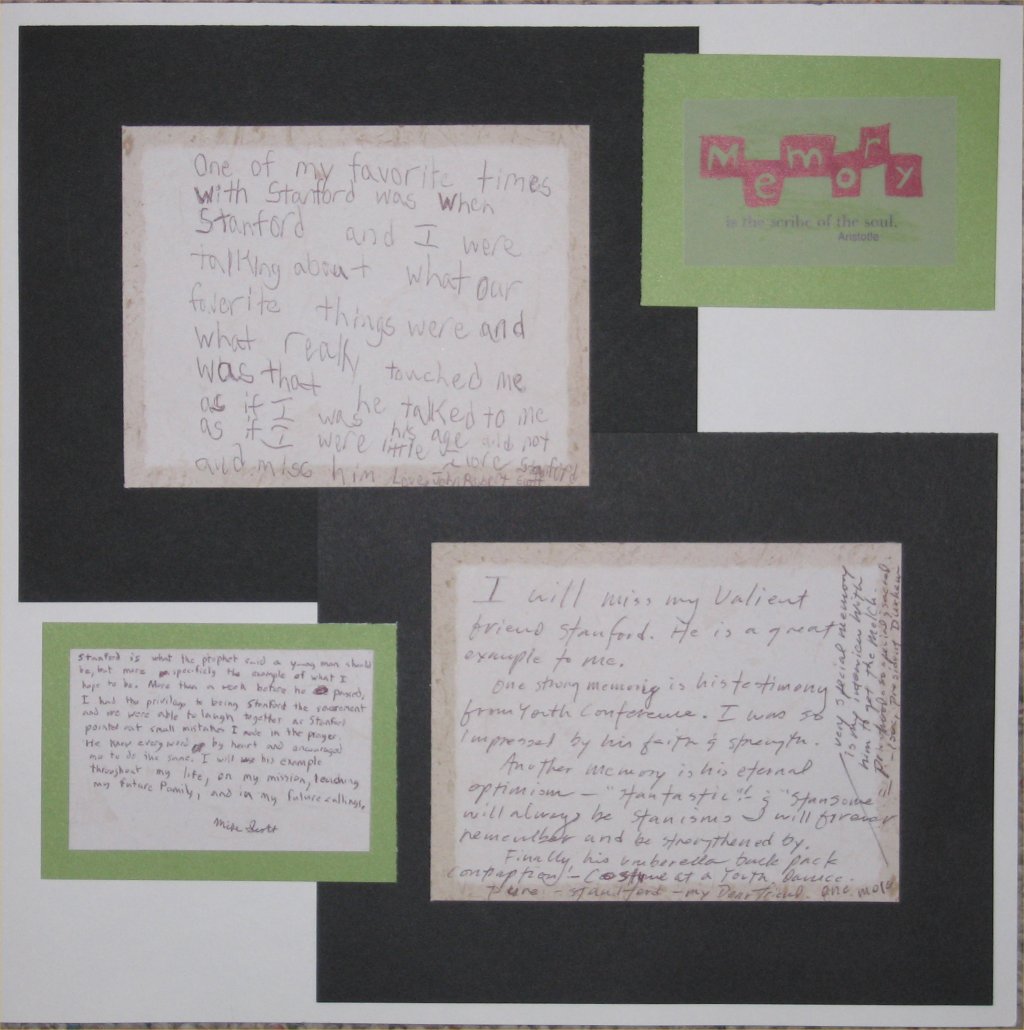 One of my favorite times
with Stanford was when
Stanford and I were
talking about what our
favorite things were and
what really touched me
was that he talked to me
as if I was
as if I were his age and not
little
and miss him I love Stanford
Love, John Robert Scott
Memory
is the scribe of the soul.
Aristotle
Stanford is what the prophet said a young man should
be, but more specificly the example of what I
hope to be. More than a week before he passed,
I had the privilege to bring Stanford the sacrement
and we were able to laugh together as Stanford
pointed out small mistakes I made in the prayer.
He knew every word by heart and encouraged
me to do the same. I will use his example
throughout my life, on my mission, teaching
my future family, and in my future callings.
Mike Scott
I will miss my Valient
friend Stanford. He is a great
example to me.
One strong memory is his testimony
from Youth Conference. I was so
impressed by his faith & strength.
Another memory is his eternal
optimism – "Stantastic"! & "Stansome"
will always be Stanisms I will forever
remember and be strengthened by.
Finally his umberella back pack
contraption! – Costume at a Youth Dance.
Stanford – my Dear friend. one more
very special memory
is my interview with
him to get the Melch.
Priesthood – so special & sacred.
– Love, President Durham